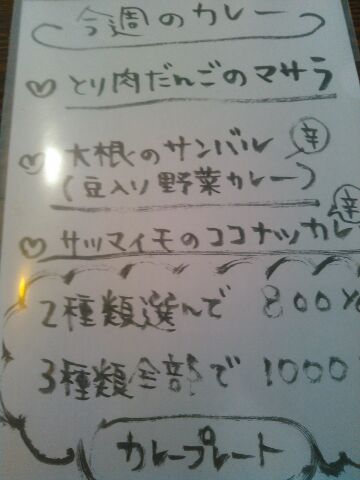 今週のカレー
♡ とり肉だんごのマサラ
♡ 大根のサンバル 辛
(豆入り野菜カレー)
♡ サツマイモのココナッツカレ 辛
2種類選んで 800
3種類全部で 1000
カレープレート